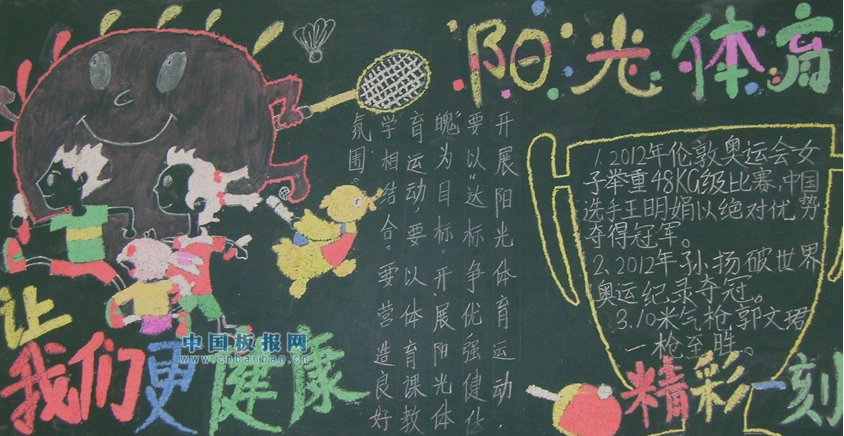 阳光体育
开展阳光体育运动,
要以“达标争优强健体
魄”为目标。开展阳光体
育运动,要以体育课教
学相结合。要营造良好
氛围。
1.2012年伦敦奥运会女
子举重48KG级比赛,中国
选手王明娟以绝对优势
夺得冠军。
2.2012年孙扬破世界
奥运纪录夺冠。
3.10米气枪,郭文珺
枪至胜。
精彩一刻
让
我们更健康
中国板报网
www.cnbanbao.cn